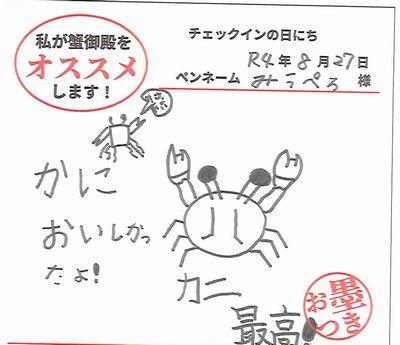 私が蟹御殿を
オススメ
します！
チェックインの日にち
R4年8月27日
ペンネーム みうぺろ 様
かに
おいしかっ
たよ！
カニ
最高！
お墨つき